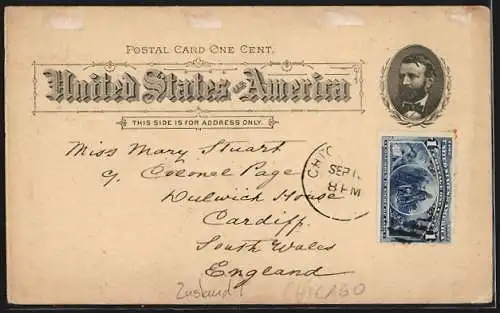 POSTAL CARD ONE CENT.
United States of America
THIS SIDE IS FOR ADDRESS ONLY.
Miss Mary Stuart
c/ Colonel Page
Dulwich House
Cardiff
South Wales
England
CHIC
SEP 1
8 PM
1 1
Zusland
CHICAGO